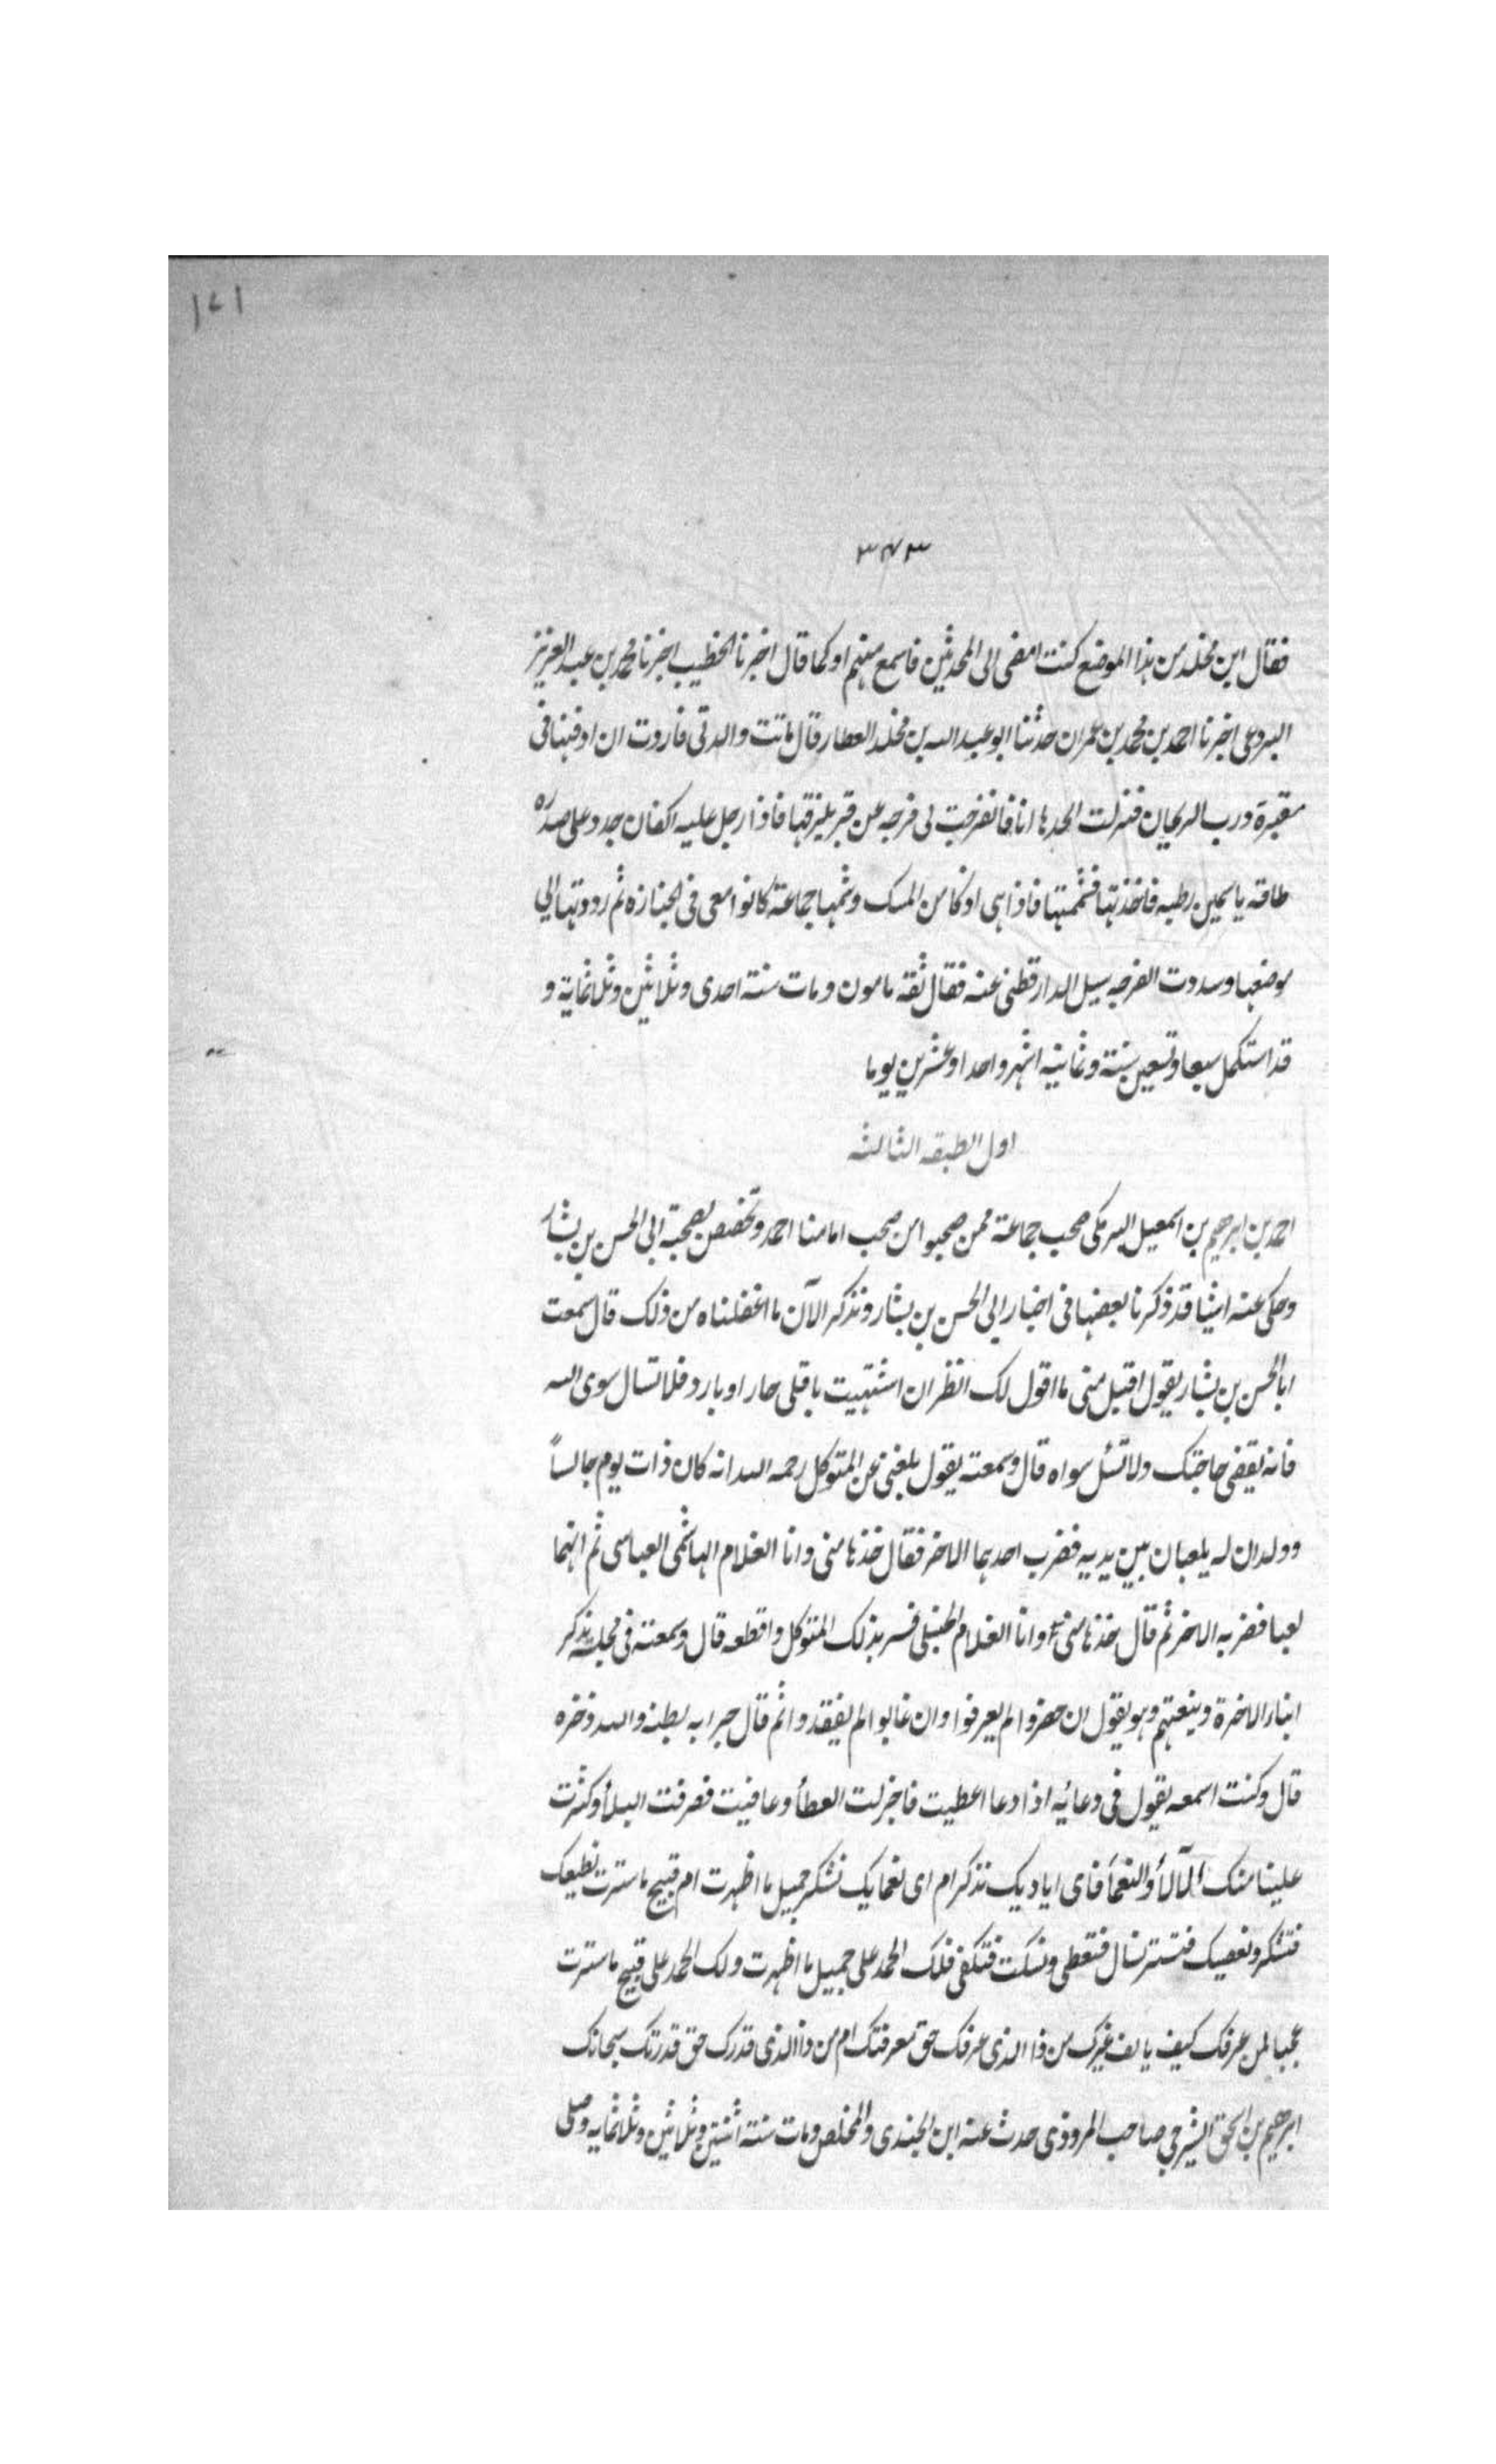 ١٧١
٣٤٣
فقال ابن مخلد من هذا الموضع كنت امضى الى المحدثين فاسمع منهم او كما قال اخبرنا الخطيب اخبرنا محمد بن عبد العزيز
البردعى اخبرنا احمد بن محمد بن عمران حدثنا ابو عبد الله بن مخلد العطار قال ماتت والدتى فاردت ان ادفنها فى
مقبرة درب الريحان فنزلت الحدها انا فانفرجت لى فرجه عن قبر بلزقها فاذا رجل عليه اكفان جدد على صدره
طاقه ياسمين رطبه فاخذتها فشممتها فاذا هى اذكا من المسك وشمها جماعة كانوا معى فى الجنازه ثم رددتها الي
موضعها وسددت الفرجه سيل الدارقطنى عنه فقال ثقه مامون ومات سنة احدى وثلاثين وثلاثماية و
قد استكمل سبعا وتسعين سنة وثمانيه اشهر واحدا وعشرين يوما
اول الطبقه الثالثه
احمد بن ابرهيم بن اسمعيل البرمكى صحب جماعة ممن صحبوا من صحب امامنا احمد وتخصص بصحبة ابى الحسن بن بشار
وحكى عنه اشيا قد ذكرنا بعضها فى اخبار ابي الحسن بن بشار ونذكر الآن ما اغفلناه من ذلك قال سمعت
ابا الحسن بن بشار يقول اقبل منى ما اقول لك انظر ان اشتهيت باقلى حار او بارد فلا تسال سوى الله
فانه يقضى حاجتك ولا تسئل سواه قال وسمعته يقول بلغنى عن المتوكل رحمه الله انه كان ذات يوم جالساً
وولدان له يلعبان بين يديه فضرب احدهما الاخر فقال خذها منى وانا الغلام الهاشمى العباسى ثم انهما
لعبا فضربه الاخر ثم قال خذها منى وانا الغلام الحنبلى فسر بذلك المتوكل واقطعه قال وسمعته فى مجلسه يذكر
ابناء الاخرة وينعتهم وهو يقول ان حضروا لم يعرفوا وان غابوا لم يفقدوا ثم قال جبرابه بطنه والله وخره
قال وكنت اسمعه يقول فى دعائه اذا دعا اعطيت فاجزلت العطأ وعافيت فصرفت البلأ وكثرت
علينا منك الآلأ والنعمأ فاى اياديك نذكر ام اى نعمايك نشكر جميل ما اظهرت ام قبيح ما سترت نطيعك
فتشكر ونعصيك فتستر نسال فتعطى ونسكت فتكفى فلك الحمد على جميل ما اظهرت ولك الحمد على قبيح ما سترت
عجبا لمن عرفك كيف يالف غيرك من ذا الذى عرفك حق معرفتك ام من ذا الذى قدرك حق قدرتك سبحانك
ابرهيم بن اسحق الشيرجي صاحب المروذى حدث عنه ابن الجندى والمخلص ومات سنة اثنتين وثلاثين وثلاثمايه وصلى